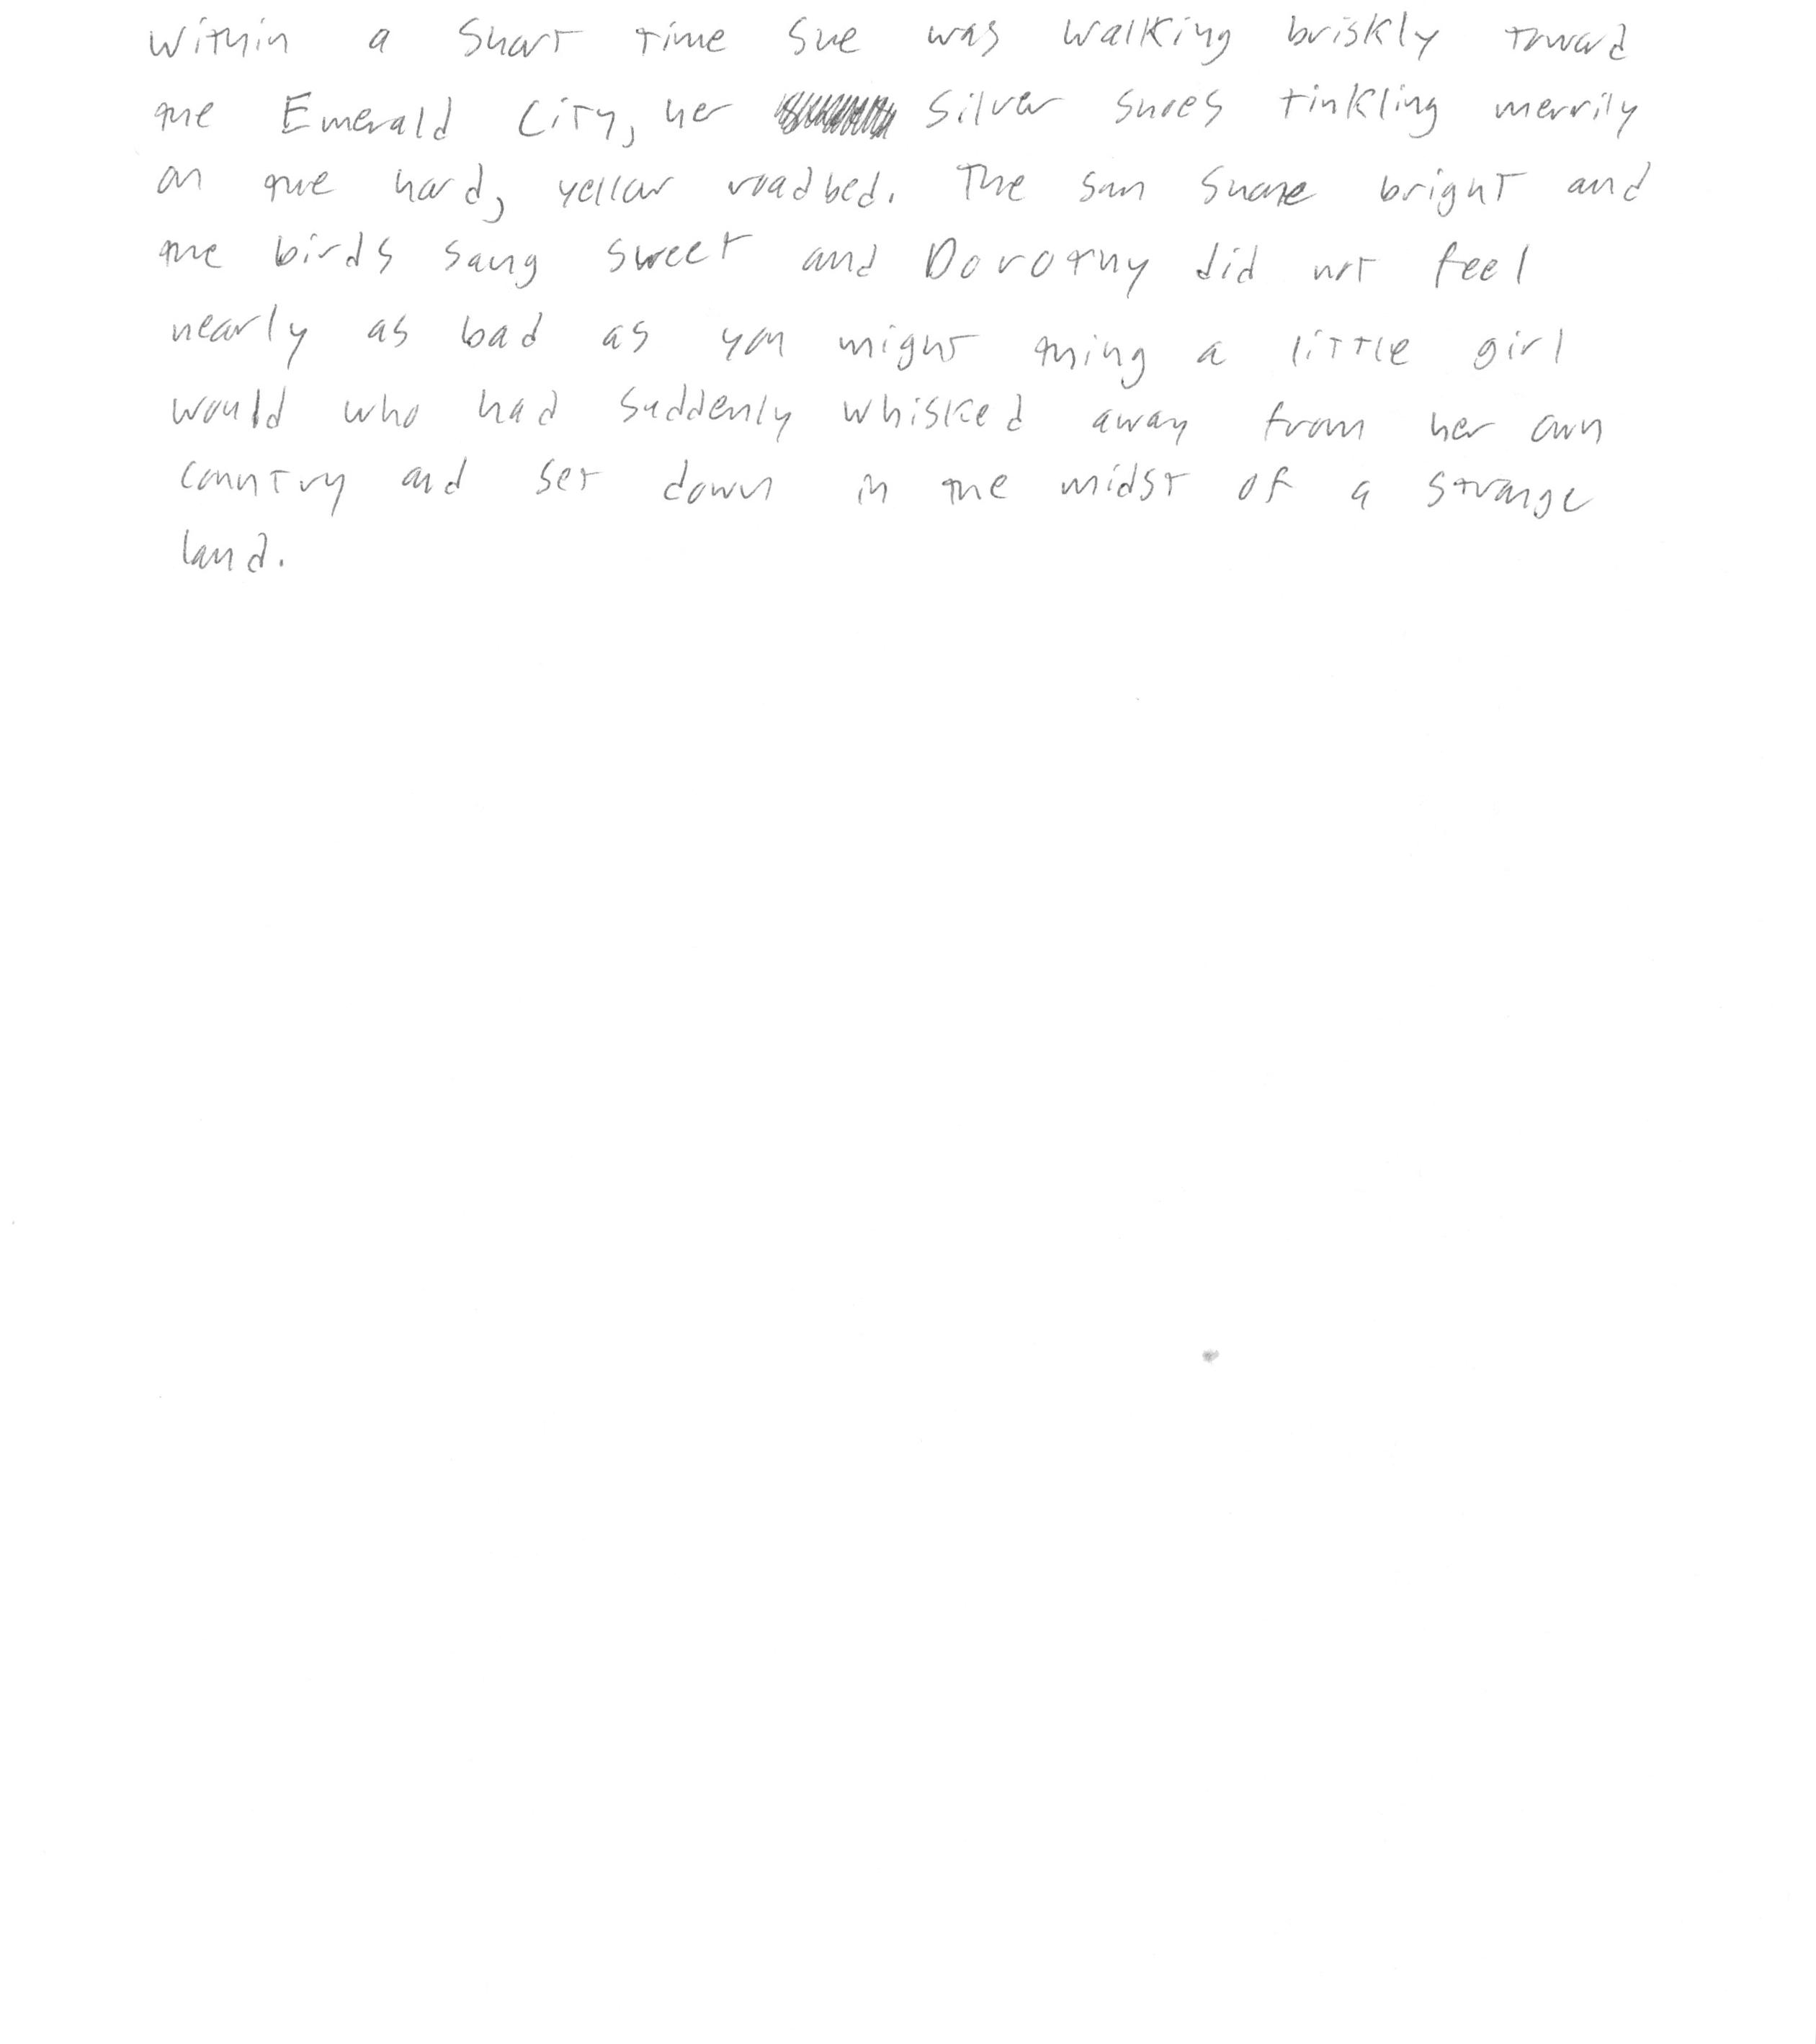 Within a short time she was walking briskly toward
the Emerald City, her silver shoes tinkling merrily
on the hard, yellow roadbed. The sun shone bright and
the birds sang sweet and Dorothy did not feel
nearly as bad as you might thing a little girl
would who had suddenly whisked away from her own
country and set down in the midst of a strange
land.